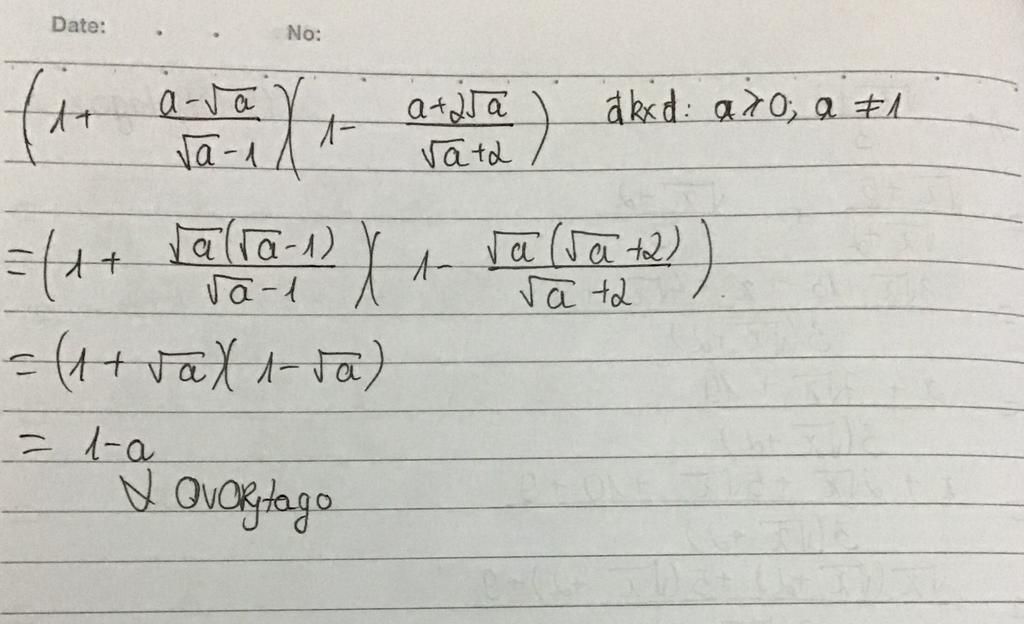 Date: . . No:
(1 + (a - √a)/(√a - 1))(1 - (a + 2√a)/(√a + 2)) đkxđ: a ≥ 0; a ≠ 1
= (1 + (√a(√a - 1))/(√a - 1))(1 - (√a(√a + 2))/(√a + 2))
= (1 + √a)(1 - √a)
= 1 - a